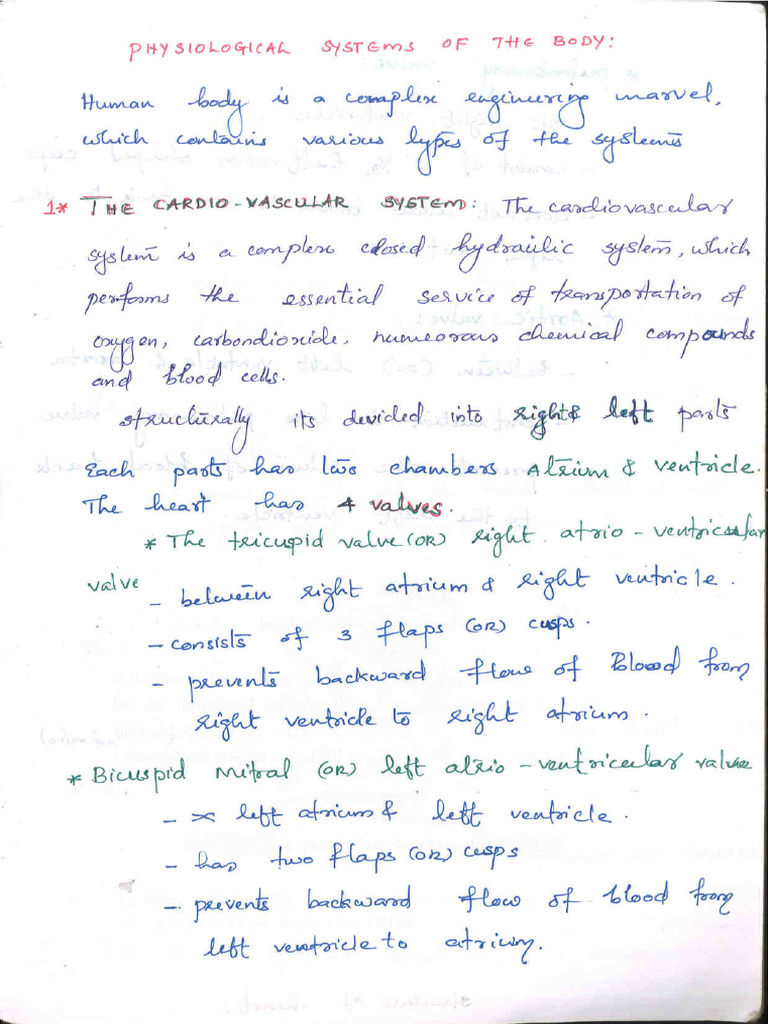 PHYSIOLOGICAL SYSTEMS OF THE BODY:
Human body is a complex engineering marvel,
which contains various types of the systems
1* THE CARDIO-VASCULAR SYSTEM: The cardiovascular
system is a complex closed hydraulic system, which
performs the essential service of transportation of
oxygen, carbondioxide, numeorous chemical compounds
and blood cells.
structurally its devided into right & left parts
Each parts has two chambers Atrium & ventricle.
The heart has 4 valves.
* The tricuspid valve (OR) right atrio-ventricular
valve
- between right atrium & right ventricle.
- consists of 3 flaps (OR) cusps.
- prevents backward flow of Blood from
right ventricle to right atrium.
* Bicuspid Mitral (OR) left atrio-ventricular valve
- left atrium & left ventricle.
- has two flaps (OR) cusps
- prevents backward flow of blood from
left ventricle to atrium.